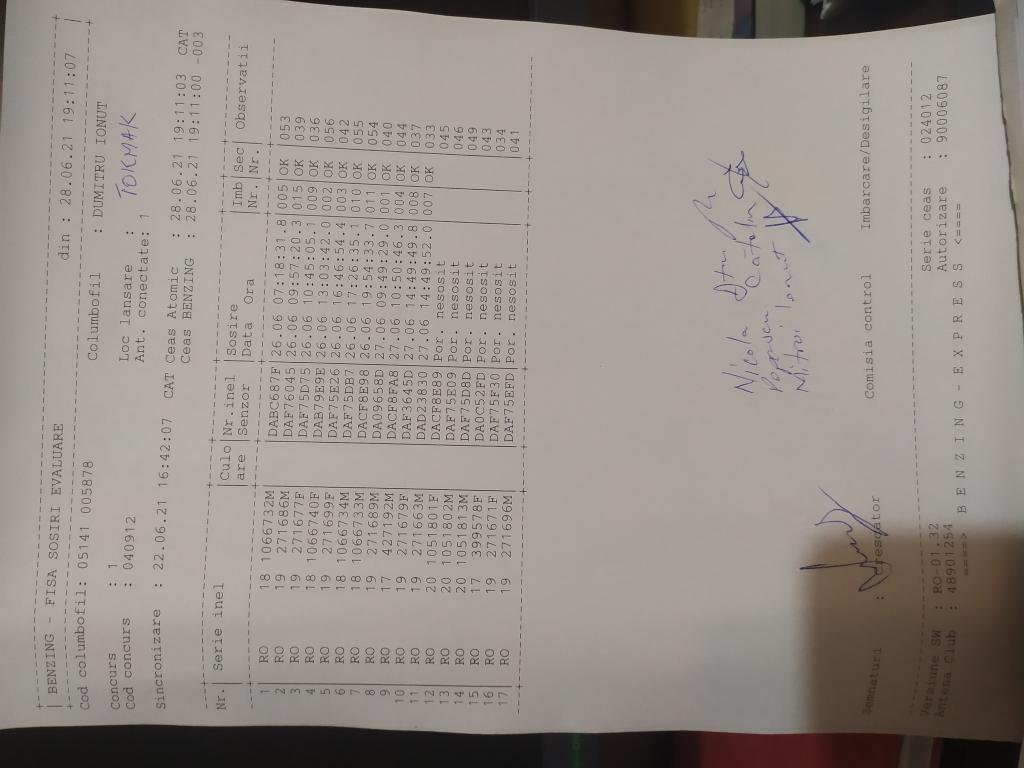 BENZING - FISA SOSIRI EVALUARE
din : 28.06.21 19:11:07
Cod columbofil: 05141 005878 Columbofil : DUMITRU IONUT
Concurs : 1 Loc lansare : TOKMAK
Cod concurs : 040912 Ant. conectate: 1
Sincronizare : 22.06.21 16:42:07 CAT Ceas Atomic : 28.06.21 19:11:03 CAT
Ceas BENZING : 28.06.21 19:11:00 -003
Nr. | Serie inel | Culo | Nr.inel | Sosire | Imb | Sec | Observatii
are | Senzor | Data Ora | Nr. | Nr.
1 RO 18 1066732M DABC687F 26.06 07:18:31.8 005 OK 053
2 RO 19 271686M DAF76045 26.06 09:57:20.3 015 OK 039
3 RO 19 271677F DAF75D75 26.06 10:45:05.1 009 OK 036
4 RO 18 1066740F DAB79E9E 26.06 13:03:42.0 002 OK 056
5 RO 19 271699F DAF75E26 26.06 16:46:54.4 003 OK 042
6 RO 18 1066734M DAF75DB7 26.06 17:26:35.1 010 OK 055
7 RO 18 1066733M DACF8E98 26.06 19:54:33.7 011 OK 054
8 RO 19 271689M DA09658D 27.06 09:49:29.0 001 OK 040
9 RO 17 427192M DACF8FA8 27.06 10:50:46.3 004 OK 044
10 RO 19 271679F DAF3645D 27.06 14:49:49.8 008 OK 037
11 RO 19 271663M DAD23830 27.06 14:49:52.0 007 OK 033
12 RO 20 1051801F DACF8E89 Por. nesosit 045
13 RO 20 1051802M DAF75E09 Por. nesosit 046
14 RO 20 1051813M DAF75D8D Por. nesosit 049
15 RO 17 399578F DA0C52FD Por. nesosit 043
16 RO 19 271671F DAF75F30 Por. nesosit 034
17 RO 19 271696M DAF75EFD Por. nesosit 041
Nicola
Catalin
Mitroi Ionut
Semnaturi : Crescator Comisia control Imbarcare/Desigilare
Versiune SW : RO-01.32 Serie ceas : 024012
Antena Club : 48901254 Autorizare : 90006087
====> B E N Z I N G - E X P R E S S <====